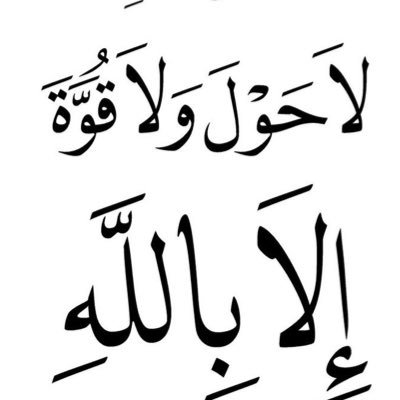 لاَ حَوْلَ وَلاَ قُوَّةَ
إِلاَ بِاللَّهِ